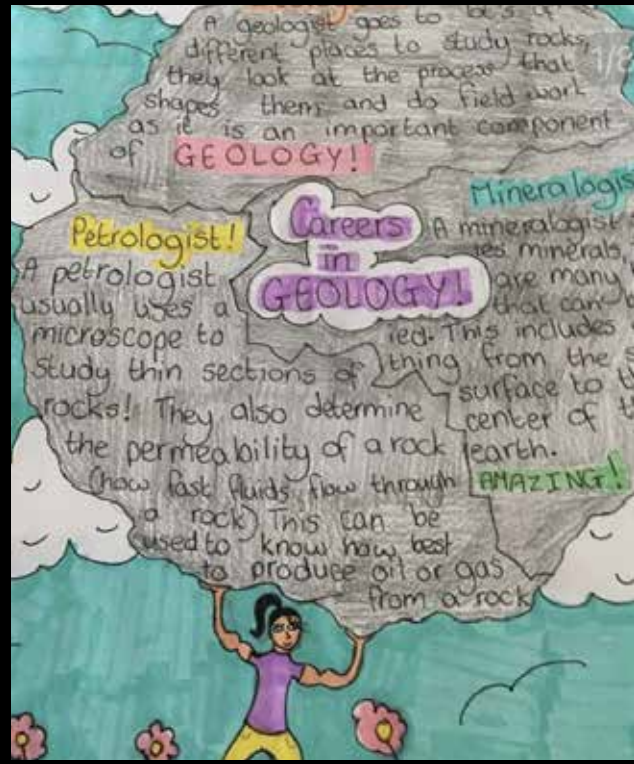 A geologist goes to lot's of
different places to study rocks,
they look at the process that
shapes them and do field work
as it is an important component
of GEOLOGY!
Careers
in
GEOLOGY!
Petrologist!
A petrologist
usually uses a
microscope to
study thin sections of
rocks! They also determine
the permeability of a rock
(how fast fluids flow through
a rock) This can be
used to know how best
to produce oil or gas
from a rock
Mineralogis
A mineralogist
minerals,
are many
that can
ied. This includes
thing from the
surface to
center of
earth.
AMAZING!